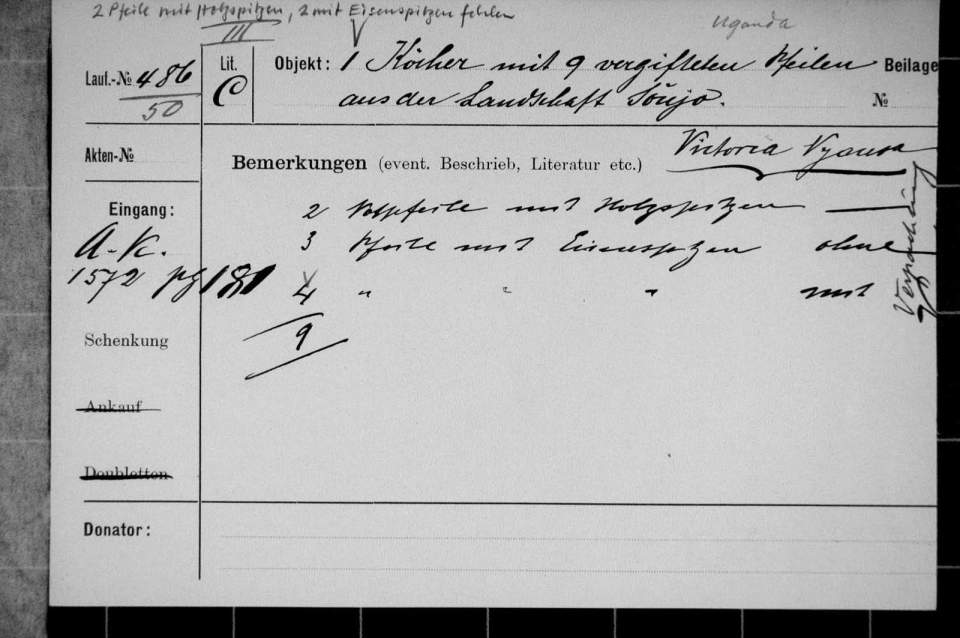 2 Pfeile mit Holzspitzen, 2 mit Eisenspitzen fehlen
Uganda
III
Lauf.-№ 486
50
Lit.
C
Objekt: 1 Köcher mit 9 vergifteten Pfeilen
aus der Landschaft Soujo.
Beilage
№
Akten-№
Bemerkungen (event. Beschrieb, Literatur etc.)
Victoria Nyansa
Eingang:
A.K.
1572 pg 181
2 Holzpfeile mit Holzspitzen —
3 Pfeile mit Eisenspitzen ohne
4 " " " mit
Verpackung
9
Schenkung
Ankauf
Doubletten
Donator: